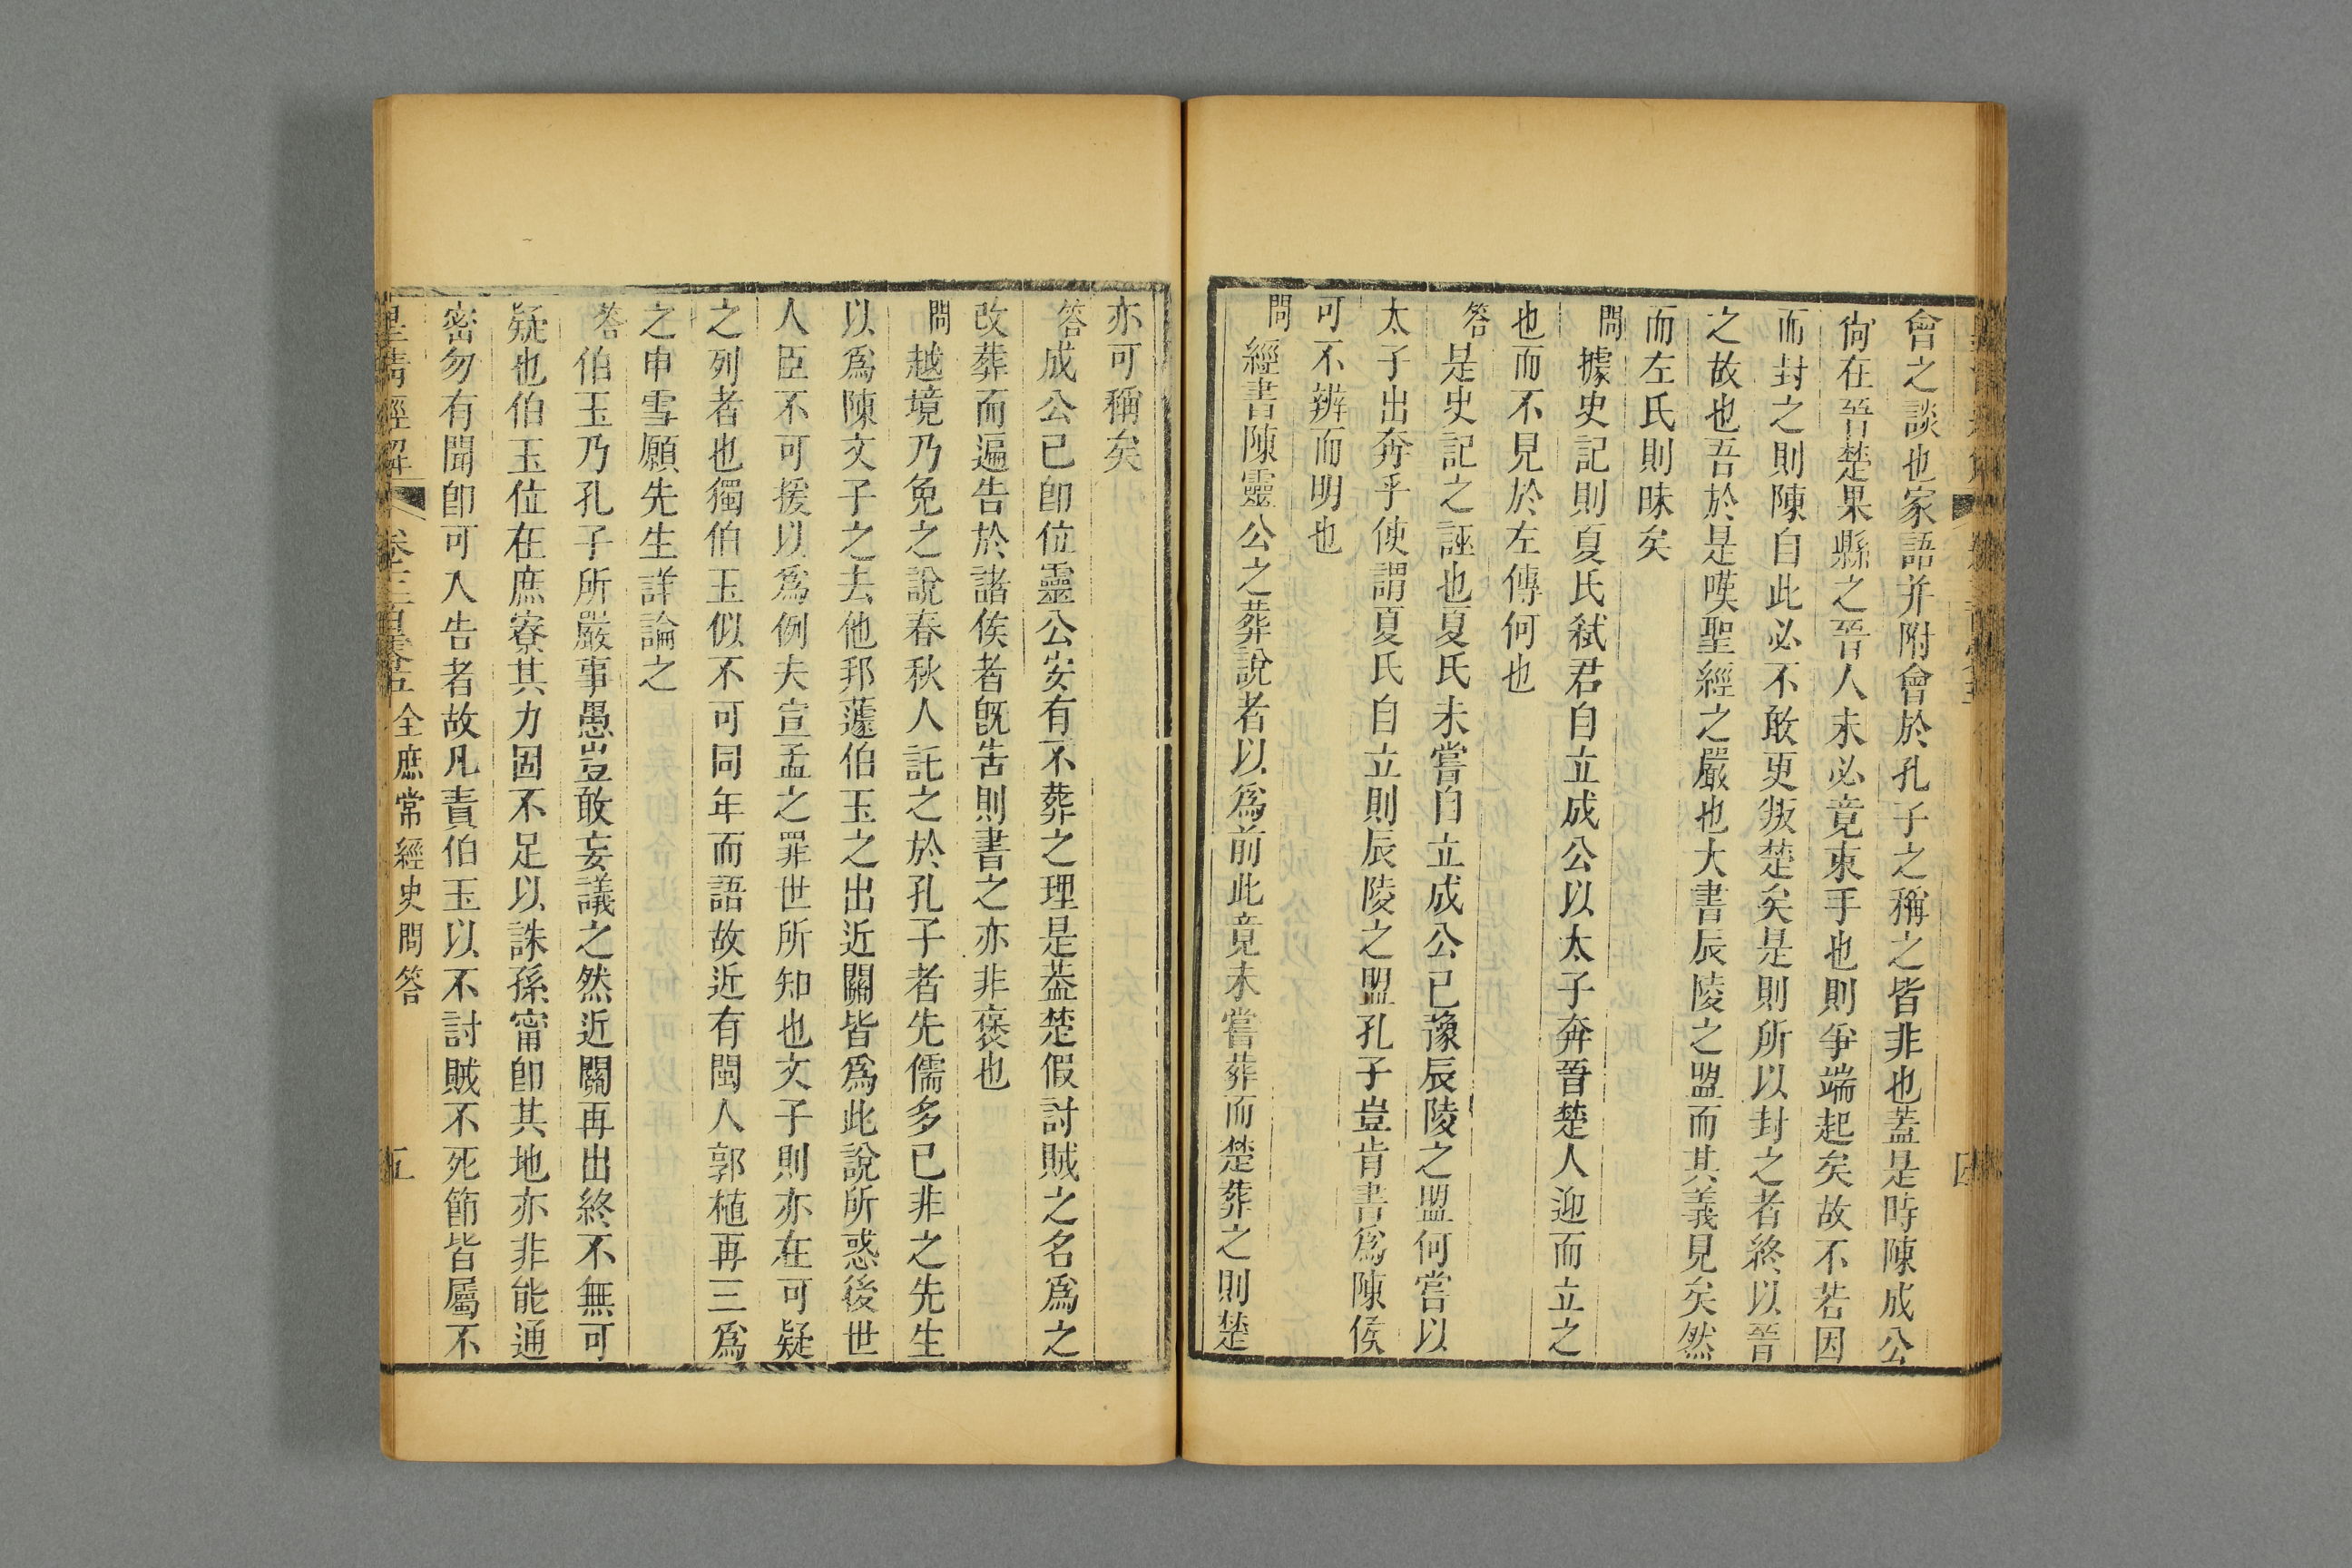 會之談也家語并附會於孔子之稱之皆非也蓋是時陳成公
尙在晉楚果縣之晉人未必竟束手也則爭端起矣故不若因
而封之則陳自此必不敢更叛楚矣是則所以封之者終以晉
之故也吾於是嘆聖經之嚴也大書辰陵之盟而其義見矣然
而左氏則昧矣
問據史記則夏氏弑君自立成公以太子奔晉楚人迎而立之
也而不見於左傳何也
答是史記之誣也夏氏未嘗自立成公已豫辰陵之盟何嘗以
太子出奔乎使謂夏氏自立則辰陵之盟孔子豈肯書爲陳侯
可不辨而明也
問經書陳靈公之葬說者以爲前此竟未嘗葬而楚葬之則楚
亦可稱矣
答成公已卽位靈公安有不葬之理是葢楚假討賊之名爲之
改葬而遍告於諸侯者旣告則書之亦非褒也
問越境乃免之說春秋人託之於孔子者先儒多已非之先生
以爲陳文子之去他邦蘧伯玉之出近關皆爲此說所惑後世
人臣不可援以爲例夫宣孟之罪世所知也文子則亦在可疑
之列者也獨伯玉似不可同年而語故近有閩人郭植再三爲
之申雪願先生詳論之
答伯玉乃孔子所嚴事愚豈敢妄議之然近關再出終不無可
疑也伯玉位在庶寮其力固不足以誅孫甯卽其地亦非能通
密勿有聞卽可入告者故凡責伯玉以不討賊不死節皆屬不
皇淸經解 卷三百零五 全庶常經史問答 五